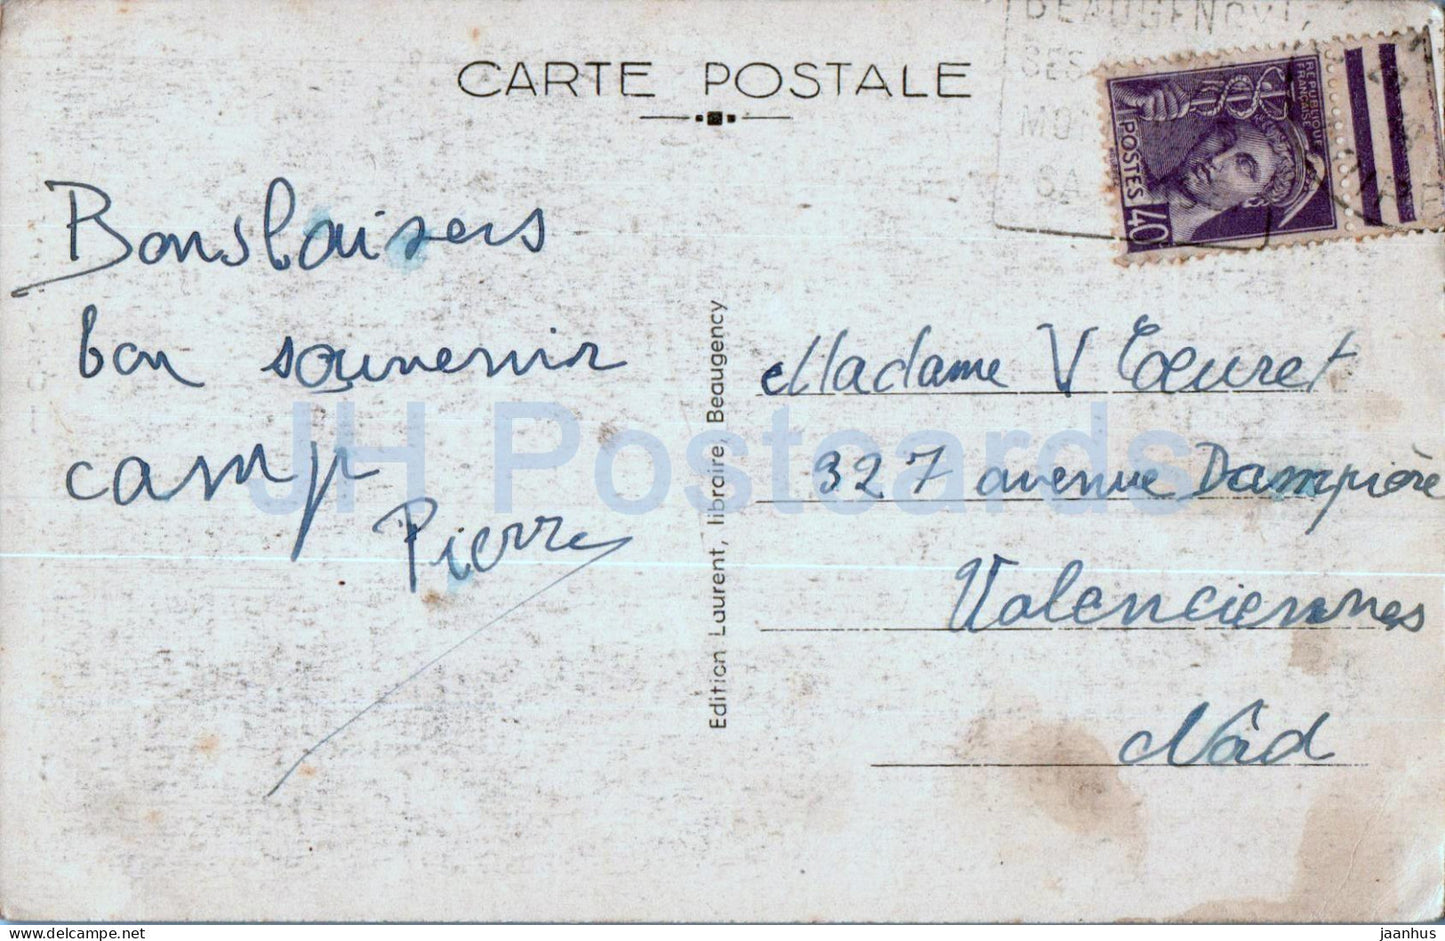 CARTE POSTALE
BEAUGENCY
SES
MO
SA
RÉPUBLIQUE
FRANÇAISE
POSTES 40
Bonsbaisers
bon souvenir
camp
Pierre
Edition Laurent, libraire, Beaugency
Madame V
327 avenue Dampière
Valenciennes
Nord
JH Postcards
jaanhus